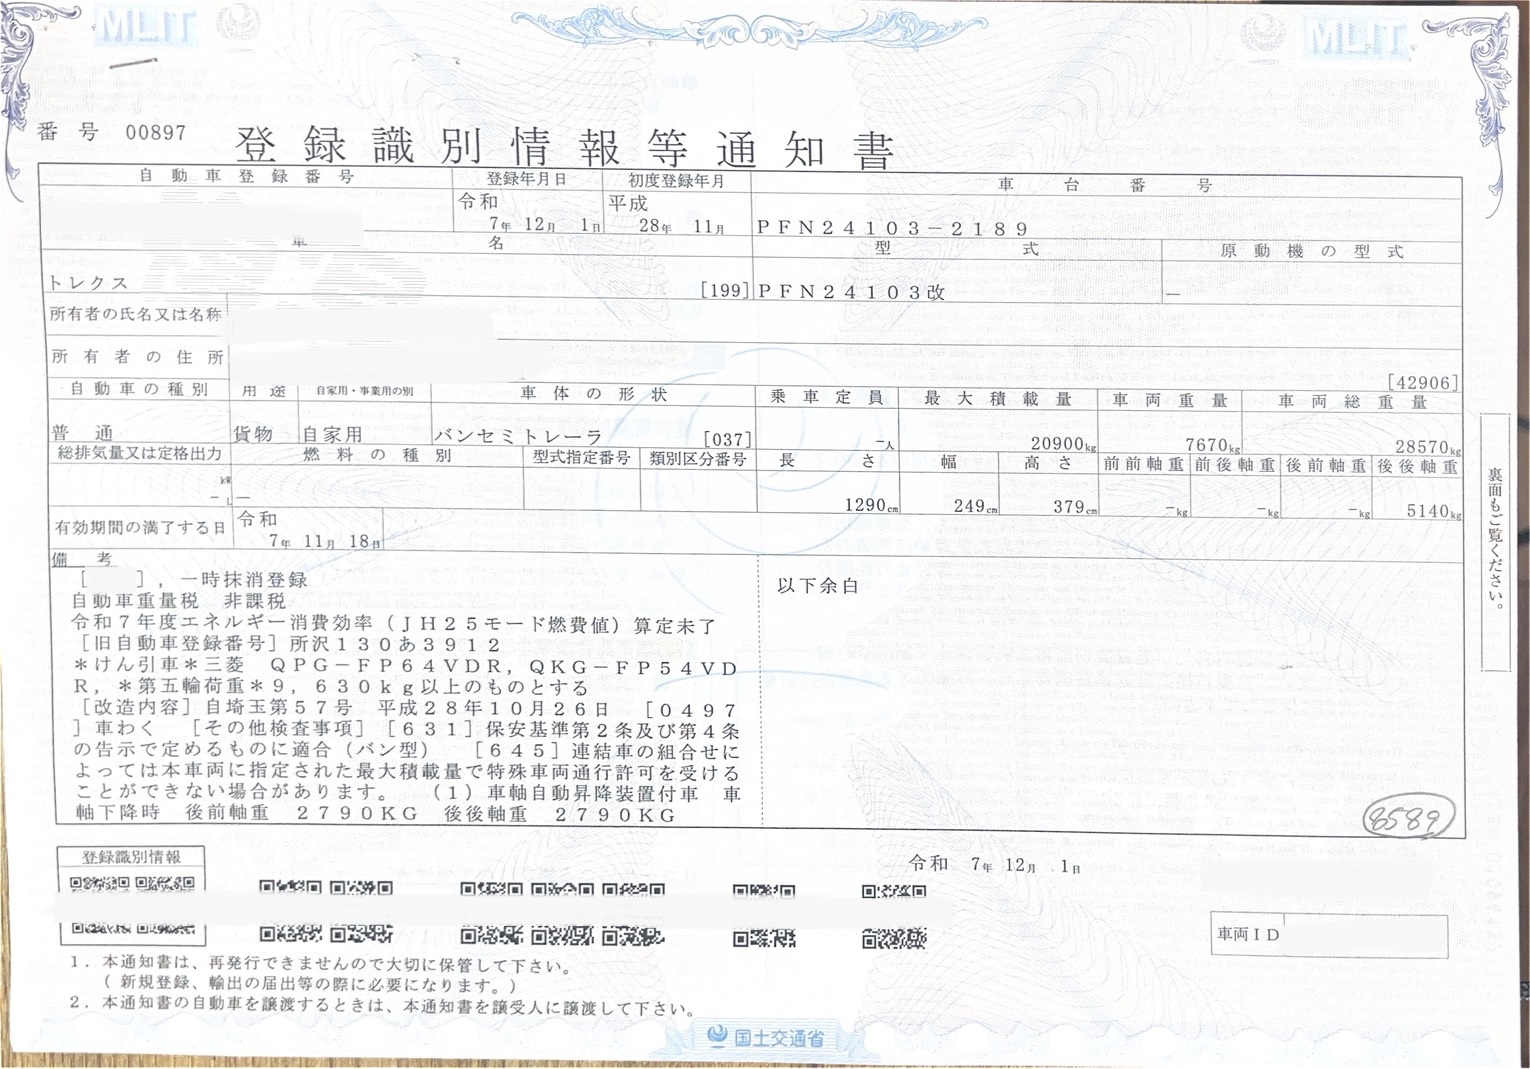 MLIT
MLIT
番号 00897
登録識別情報等通知書
自動車登録番号 登録年月日 初度登録年月 車台番号
令和 7年 12月 1日 平成 28年 11月 PFN24103-2189
車名 型式 原動機の型式
トレクス [199] PFN24103改 －
所有者の氏名又は名称
所有者の住所
[42906]
自動車の種別 用途 自家用・事業用の別 車体の形状 乗車定員 最大積載量 車両重量 車両総重量
普通 貨物 自家用 バンセミトレーラ [037] －人 20900kg 7670kg 28570kg
総排気量又は定格出力 燃料の種別 型式指定番号 類別区分番号 長さ 幅 高さ 前前軸重 前後軸重 後前軸重 後後軸重
kW
－L － 1290cm 249cm 379cm －kg －kg －kg 5140kg
有効期間の満了する日 令和 7年 11月 18日
備考
[ ]，一時抹消登録
自動車重量税 非課税
令和７年度エネルギー消費効率（ＪＨ２５モード燃費値）算定未了
［旧自動車登録番号］所沢１３０あ３９１２
＊けん引車＊三菱 ＱＰＧ－ＦＰ６４ＶＤＲ，ＱＫＧ－ＦＰ５４ＶＤ
Ｒ，＊第五輪荷重＊９，６３０ｋｇ以上のものとする
［改造内容］自埼玉第５７号 平成２８年１０月２６日 ［０４９７
］車わく ［その他検査事項］［６３１］保安基準第２条及び第４条
の告示で定めるものに適合（バン型） ［６４５］連結車の組合せに
よっては本車両に指定された最大積載量で特殊車両通行許可を受ける
ことができない場合があります。 （１）車軸自動昇降装置付車 車
軸下降時 後前軸重 ２７９０ＫＧ 後後軸重 ２７９０ＫＧ
以下余白
8589
裏面もご覧ください。
登録識別情報
令和 7年 12月 1日
車両ＩＤ
１．本通知書は、再発行できませんので大切に保管して下さい。
（新規登録、輸出の届出等の際に必要になります。）
２．本通知書の自動車を譲渡するときは、本通知書を譲受人に譲渡して下さい。
国土交通省